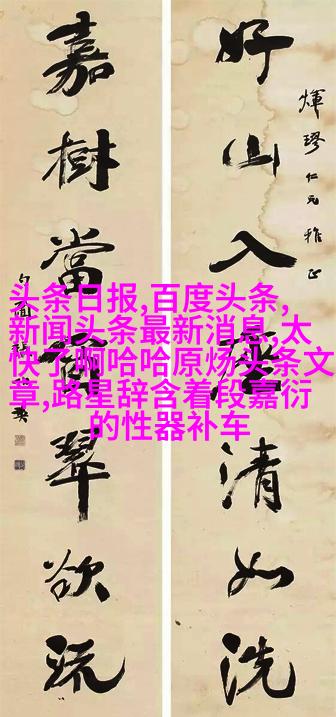 好山入座清如洗
煇璆仁兄雅正
嘉樹當窗翠欲流
头条日报,百度头条,
新闻头条最新消息,太
快了啊哈哈原炀头条文
章,路星辞含着段嘉衍
的性器补车